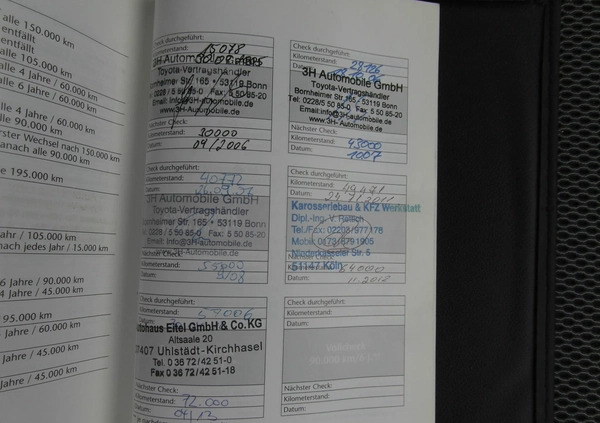 alle 150.000 km
entfällt
alle 105.000 km
alle 4 Jahre / 60.000
alle 6 Jahre / 60.000
alle 4 Jahre / 60.000
alle 90.000 km
erster Wechsel nach 150.000
danach alle 90.000 km
195.000 km
Jahr / 105.000 km
nach jedes Jahr / 15.000
6 Jahre / 90.000 km
4 Jahre / 45.000 km
95.000 km
Jahre / 60.000 km
/ 45.000 km
Jahre / 45.000 km
Check durchgeführt:
Kilometerstand: 15078
3H Automobile GmbH
Toyota-Vertragshändler
Bornheimer Str. 165 • 53119 Bonn
0228 / 5 50 85-0 Fax: 5 50 85-20
Email: Info@3H-automobile.de
www.3H-Automobile.de
Nächster Check:
Kilometerstand: 30000
Datum: 04/2006
Check durchgeführt:
Kilometerstand: 28106
Datum:
3H Automobile GmbH
Toyota-Vertragshändler
Bornheimer Str. 165 • 53119 Bonn
Tel: 0228/5 50 85-0 Fax: 5 50 85-20
Email: Info@3H-automobile.de
www.3H-Automobile.de
Nächster Check:
Kilometerstand: 43000
Datum: 10.07
Check durchgeführt:
Kilometerstand:
Datum: 26.09.07
3H Automobile GmbH
Toyota-Vertragshändler
Bornheimer Str. 165 • 53119 Bonn
0228 / 5 50 85-0 Fax: 5 50 85-20
Email: Info@3H-Automobile.de
www.3H-Automobile.de
Kilometerstand: 55000
Datum: 9/08
Check durchgeführt:
Kilometerstand:
Datum:
Karosseriebau & KFZ Werkstatt
Dipl.-Ing. V.
Tel./Fax: 02203/977178
Mobil: 0173/8791905
Niederkasseler Str. 5
51147 Köln
Nächster Check:
Kilometerstand: 64000
Datum:
Check durchgeführt:
Kilometerstand: 57006
Autohaus Eitel GmbH & Co.KG
Altsaale 20
07407 Uhlstädt-Kirchhasel
Tel. 0 36 72/42 51-0
Fax 0 36 72/42 51-18
Nächster Check:
Kilometerstand: 72.000
Datum: 04/13
Check durchgeführt:
Kilometerstand:
Datum:
Nächster Check:
Kilometerstand:
Datum: